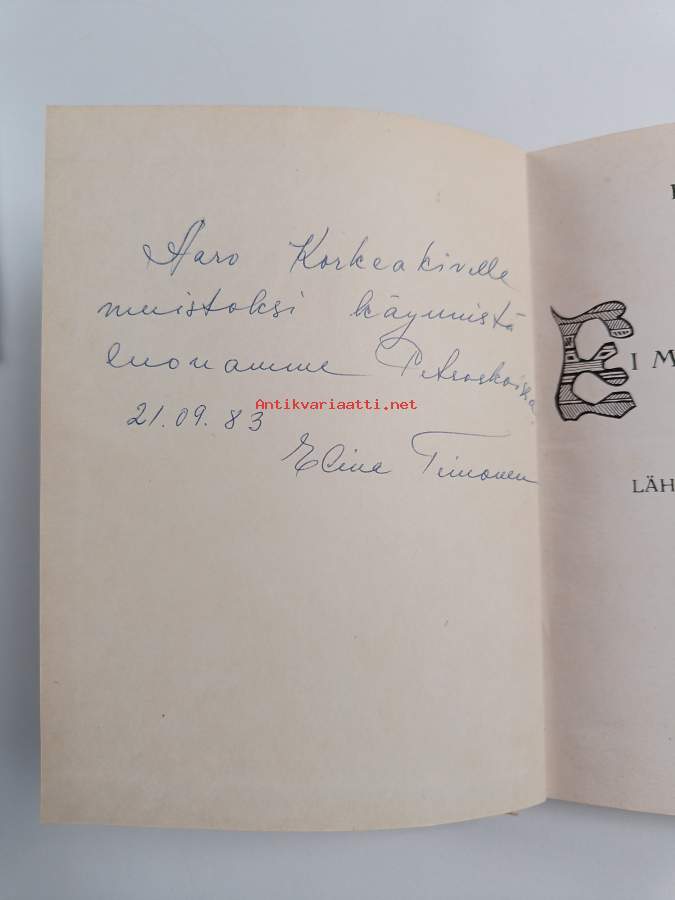 Aaro Korkeakivelle
muistoksi käynnistä
luonamme Petroskoissa.
Antikvariaatti.net
21.09.83
Elina Timonen
EI M
LÄH